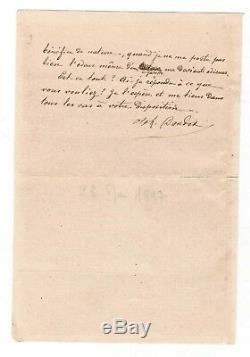 bénéfice de nature, quand je ne me porte pas
bien l'odeur même du me devient odieuse.
Est-ce tout? Ai-je répondu à ce que
vous vouliez? je l'espère et me tiens dans
tous les cas à votre disposition
Alph. Daudet
28 1897